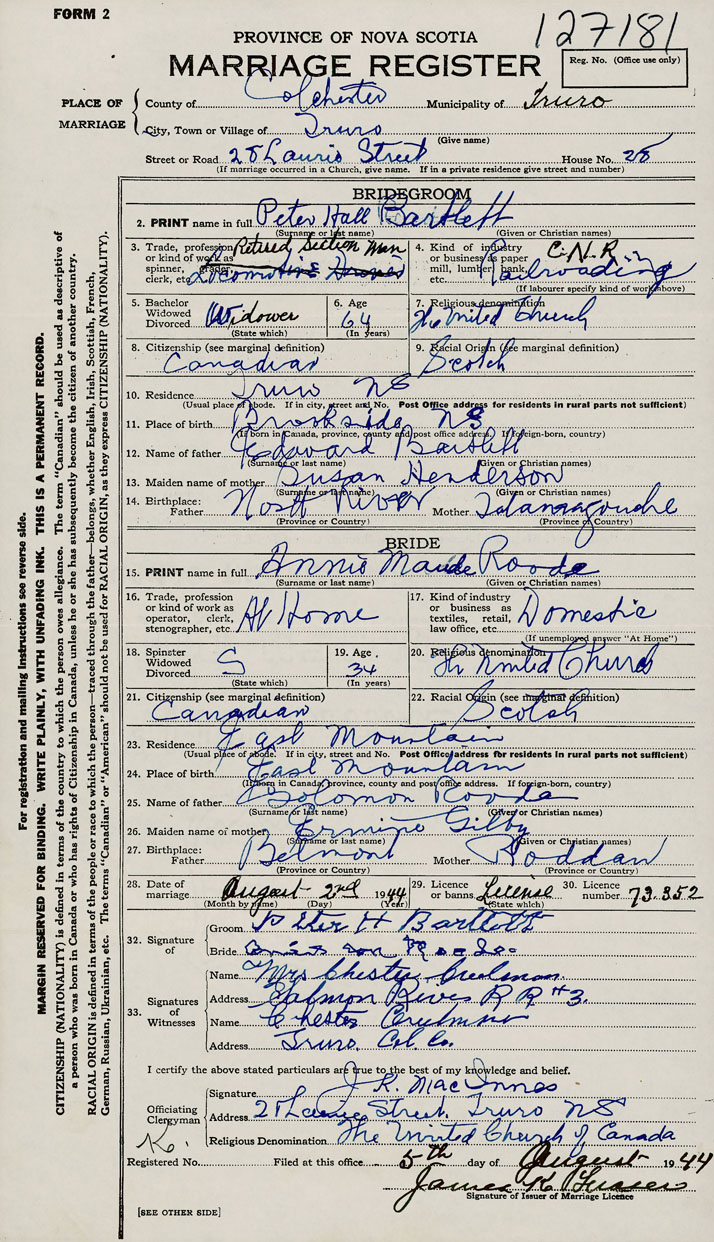 FORM 2
127181
PROVINCE OF NOVA SCOTIA
MARRIAGE REGISTER
Reg. No. (Office use only)
PLACE OF MARRIAGE
County of Colchester Municipality of Truro
City, Town or Village of Truro
(Give name)
Street or Road 28 Laurie Street House No. 28
(If marriage occurred in a Church, give name. If in a private residence give street and number)
BRIDEGROOM
2. PRINT name in full Peter Hall Bartlett
(Surname or last name) (Given or Christian names)
3. Trade, profession or kind of work as spinner, grader, clerk, etc. Retired Section Man Locomotive
4. Kind of industry or business as paper mill, lumber, bank, etc. C.N.R. Railroading
(If labourer specify kind of work above)
5. Bachelor Widowed Divorced Widower
(State which)
6. Age 64
(In years)
7. Religious denomination The United Church
8. Citizenship (see marginal definition) Canadian
9. Racial Origin (see marginal definition) Scotch
10. Residence Truro NS
(Usual place of abode. If in city, street and No. Post Office address for residents in rural parts not sufficient)
11. Place of birth Brookside NS
(If born in Canada, province, county and post office address. If foreign-born, country)
12. Name of father Edward Bartlett
(Surname or last name) (Given or Christian names)
13. Maiden name of mother Susan Henderson
(Surname or last name) (Given or Christian names)
14. Birthplace: Father North River Mother Tatamagouche
(Province or Country) (Province or Country)
BRIDE
15. PRINT name in full Annie Maude Roode
(Surname or last name) (Given or Christian names)
16. Trade, profession or kind of work as operator, clerk, stenographer, etc. At Home
17. Kind of industry or business as textiles, retail, law office, etc. Domestic
(If unemployed answer "At Home")
18. Spinster Widowed Divorced S
(State which)
19. Age 34
(In years)
20. Religious denomination The United Church
21. Citizenship (see marginal definition) Canadian
22. Racial Origin (see marginal definition) Scotch
23. Residence East Mountain
(Usual place of abode. If in city, street and No. Post Office address for residents in rural parts not sufficient)
24. Place of birth East Mountain
(If born in Canada, province, county and post office address. If foreign-born, country)
25. Name of father Solomon Roode
(Surname or last name) (Given or Christian names)
26. Maiden name of mother Ermine Gilby
(Surname or last name) (Given or Christian names)
27. Birthplace: Father Belmont Mother Roddan
(Province or Country) (Province or Country)
28. Date of marriage August 2nd 1944
(Month by name) (Day) (Year)
29. Licence or banns License
(State which)
30. Licence number 73.352
32. Signature of
Groom Peter H Bartlett
Bride
33. Signatures of Witnesses
Name Mrs Chester Creelman
Address Salmon River R R #3.
Name Chester Creelman
Address Truro, Col. Co.
I certify the above stated particulars are true to the best of my knowledge and belief.
Officiating Clergyman
Signature J. R. MacInnes
Address 28 Laurie Street, Truro NS
Religious Denomination The United Church of Canada
K.
Registered No. Filed at this office 5th day of August 1944
James K
Signature of Issuer of Marriage Licence
[SEE OTHER SIDE]
For registration and mailing instructions see reverse side.
MARGIN RESERVED FOR BINDING. WRITE PLAINLY, WITH UNFADING INK. THIS IS A PERMANENT RECORD.
CITIZENSHIP (NATIONALITY) is defined in terms of the country to which the person owes allegiance. The term "Canadian" should be used as descriptive of
a person who was born in Canada or who has rights of Citizenship in Canada, unless he or she has subsequently become the citizen of another country.
RACIAL ORIGIN is defined in terms of the people or race to which the person—traced through the father—belongs, whether English, Irish, Scottish, French,
German, Russian, Ukrainian, etc. The terms "Canadian" or "American" should not be used for RACIAL ORIGIN, as they express CITIZENSHIP (NATIONALITY).